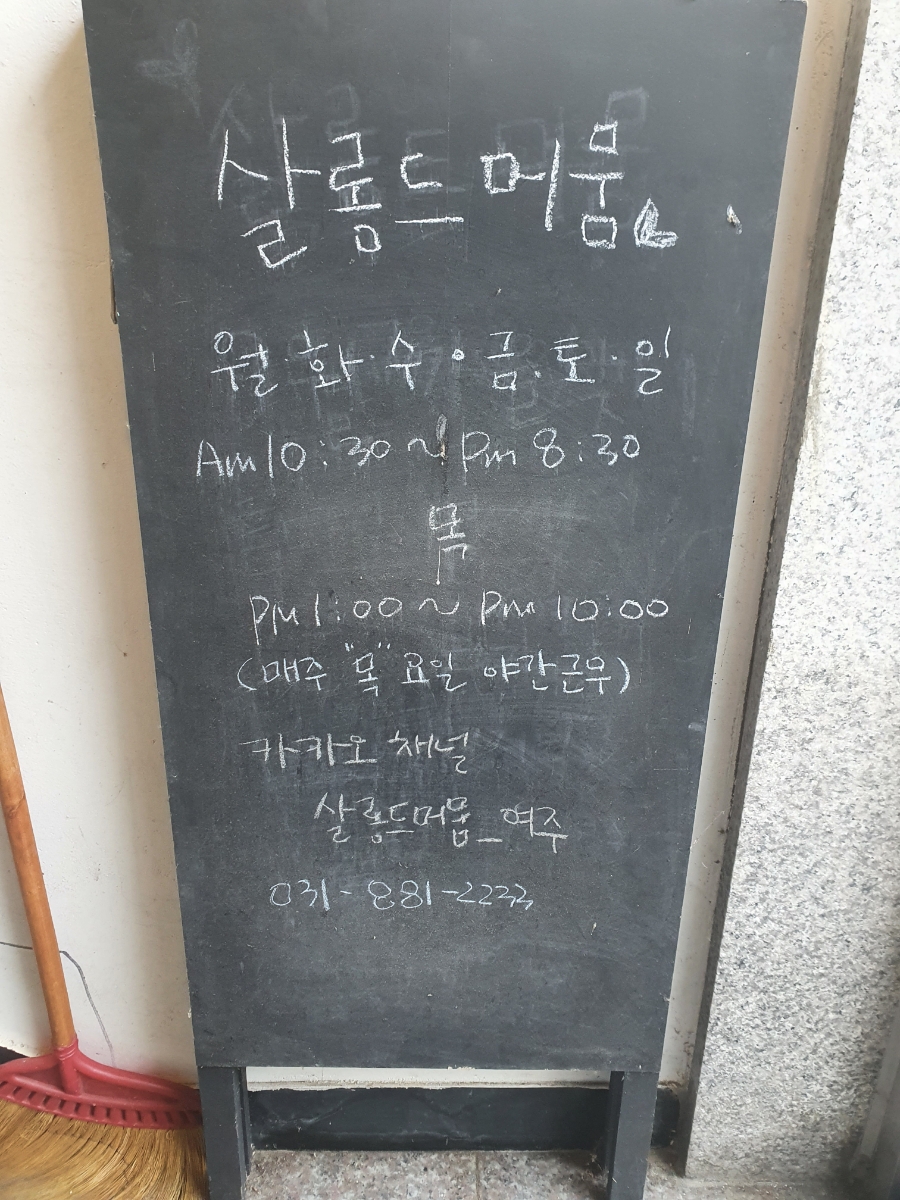 살롱드머뭄
월·화·수·금·토·일
Am 10:30 ~ Pm 8:30
목
Pm 1:00 ~ Pm 10:00
(매주 "목"요일 야간근무)
카카오 채널
살롱드머뭄_여주
031-881-2233